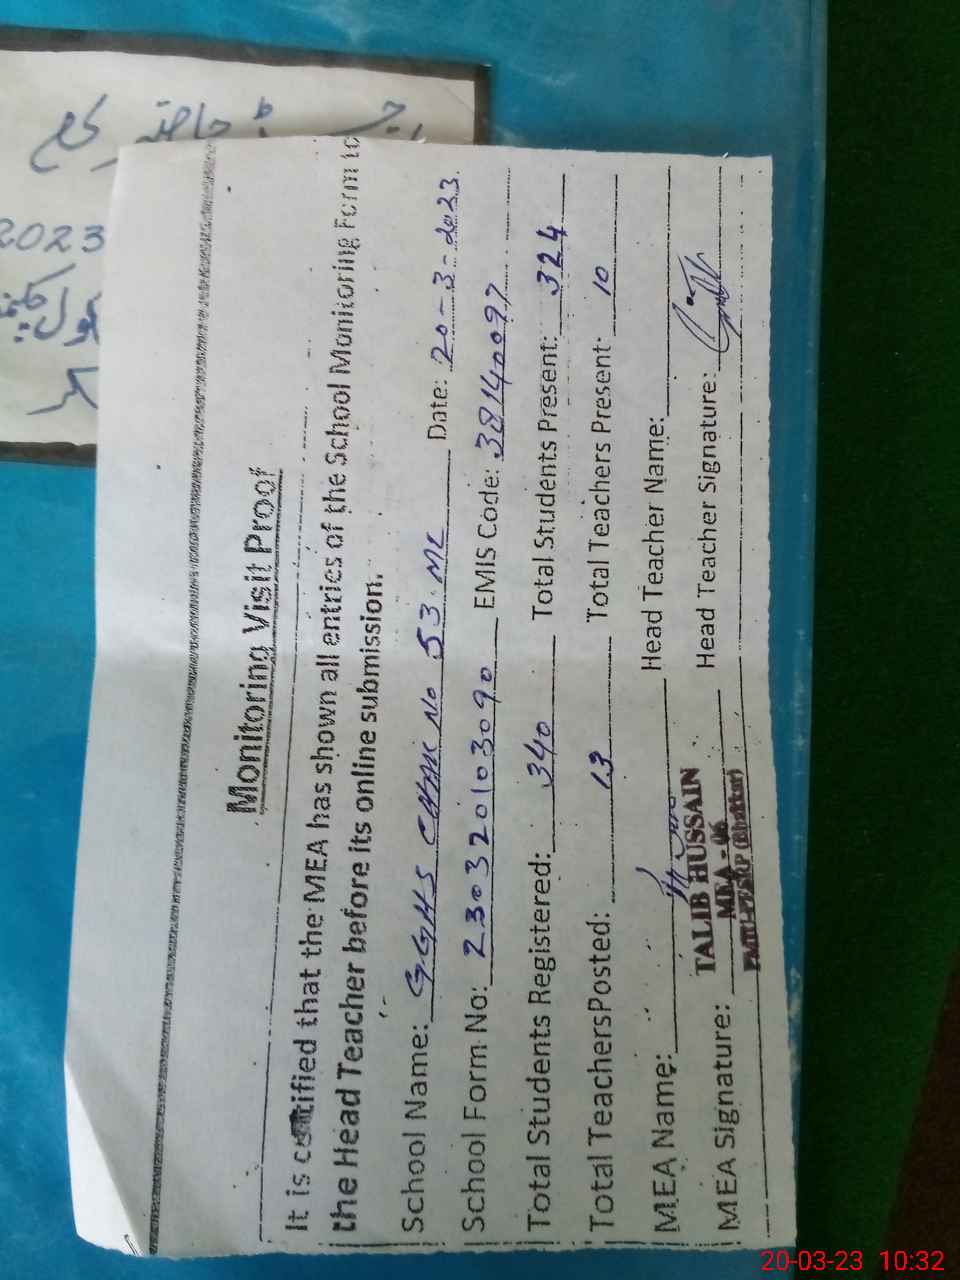 2023
Monitoring Visit Proof
It is certified that the MEA has shown all entries of the School Monitoring Form to
the Head Teacher before its online submission.
School Name: G.GHS CHAK No 53. ML Date: 20-3-2023.
School Form No: 23032010 3090 EMIS Code: 38140097
Total Students Registered: 340 Total Students Present: 324
Total TeachersPosted: 13 Total Teachers Present: 10
MEA Name: Head Teacher Name:
MEA Signature: Head Teacher Signature:
TALIB HUSSAIN
MEA - 06
PMIU-PESRP (Bhakkar)
20-03-23 10:32